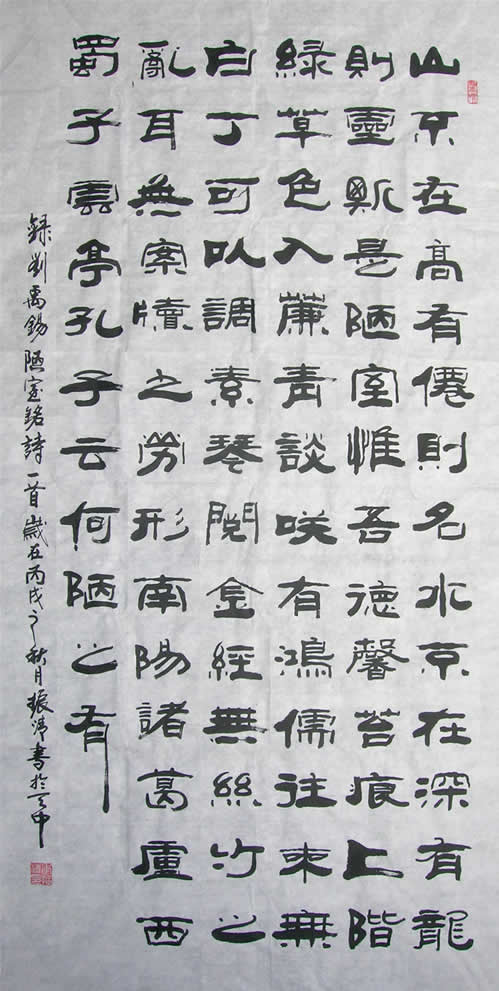 山不在高有僊則名水不在深有龍
則靈斯是陋室惟吾德馨苔痕上階
緑草色入簾青談咲有鴻儒往來無
白丁可以調素琴閱金經無絲竹之
亂耳無案牘之勞形南陽諸葛盧西
蜀子雲亭孔子云何陋之有
錄劉禹錫陋室銘詩一首歲在丙戌之秋月振書於天中